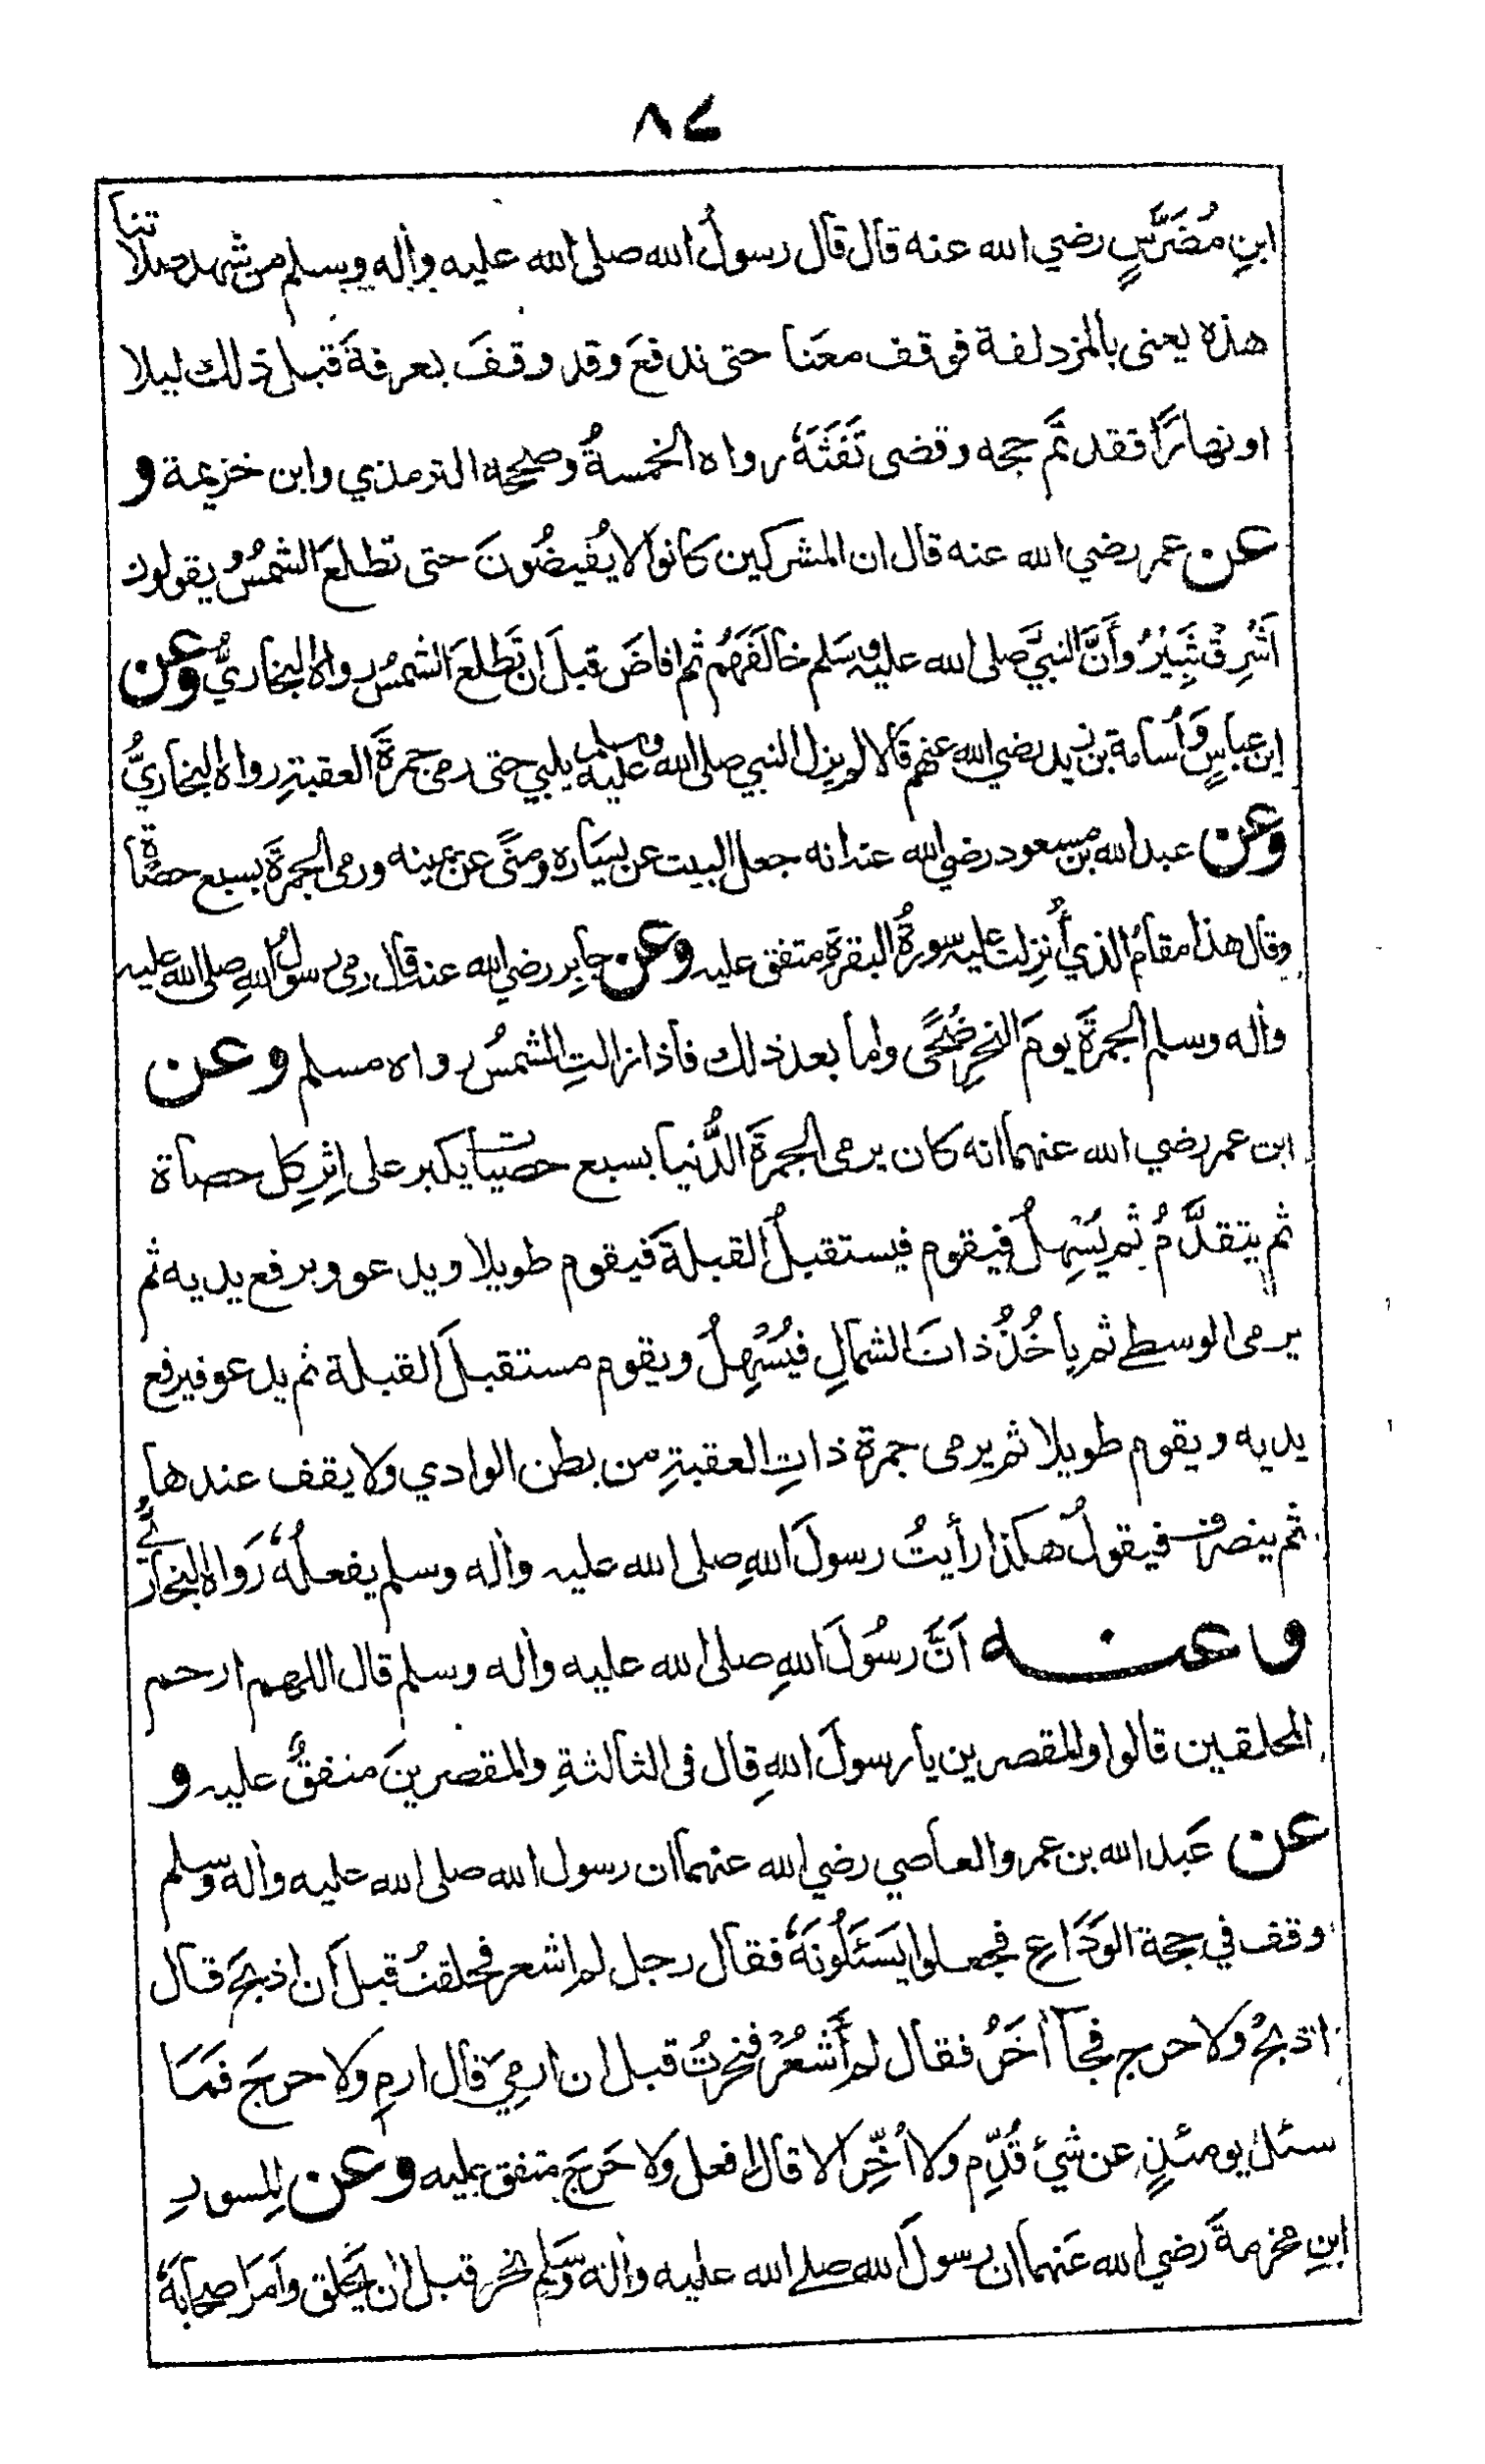 ٨٤
ابنِ مُضَرِّسٍ رضي الله عنه قال قال رسولُ الله صلى الله عليه واٰله وسلم من شهد صلاتنا
هذه يعنى بالمزدلفة فوقف معَنا حتى ندفعَ وقد وقفَ بعرفةَ قبل ذلك ليلا
او نهارًا فقد تمَّ حجه وقضى تَفَثَهٗ رواه الخمسةُ وصححه الترمذي وابن خزيمة و
عن عمر رضي الله عنه قال ان المشركين كانوا لا يُفيضُونَ حتى تطلعَ الشمسُ ويقولون
اَشْرِقْ ثَبِيْرُ وأَنَّ النبيَّ صلى الله عليه وسلم خالَفَهُم ثم افاضَ قبلَ ان تَطلعَ الشمسُ رواه البخاريُّ وعن
ابن عباسٍ وَاُسامة بن زيد رضي الله عنهم قالا لم يزل النبي صلى الله عليه وسلم يلبي حتى رمى جمرةَ العقبةِ رواه البخاريُّ
وعن عبد الله بن مسعود رضي الله عنه انه جعل البيت عن يسَاره ومنًى عن يمينه ورمى الجمرةَ بسبع حصاة
وقال هذا مقامُ الذي أُنزلت عليه سورةُ البقرةِ متفق عليه وعن جابِر رضي الله عنه قال رمى رسولُ اللهِ صلى الله عليه
واٰله وسلم الجمرةَ يومَ النحرِ ضُحًى واما بعد ذلك فاذا زالتِ الشمسُ رواه مسلم وعن
ابن عمر رضي الله عنهما انه كان يرمى الجمرةَ الدُّنيا بسبع حصيات يكبر على اِثرِ كل حصاة
ثم يتقدَّمُ ثم يُسْهِلُ فيقوم فيستقبلُ القبلةَ فيقوم طويلا ويدعو ويرفع يديه ثم
يرمى الوسطى ثم ياخُذُ ذاتَ الشمالِ فيُسْهِلُ ويقوم مستقبلَ القبلة ثم يدعو فيرفع
يديه ويقوم طويلا ثم يرمى جمرة ذاتِ العقبةِ من بطن الوادي ولا يقف عندها
ثم ينصرف فيقولُ هكذا رأيتُ رسولَ اللهِ صلى الله عليه واٰله وسلم يفعلُهٗ رَواه البخاريُّ
وعنه اَنَّ رسُولَ اللهِ صلى الله عليه واٰله وسلم قال اللهم ارحم
المحلقين قالوا والمقصرين يا رسولَ اللهِ قال فى الثالثةِ والمقصرينَ متفقٌ عليه و
عن عَبد الله بن عمرو العاصي رضي الله عنهما ان رسول الله صلى الله عليه واٰله وسلم
وقف في حجة الوَدَاعِ فجعلوا يسَئَلُونَهٗ فقال رجل لم اشعر فحلقتُ قبلَ اَن اذبحَ قال
اذبحْ ولا حرج فجآ اٰخَرُ فقال لم أَشعُرْ فنحرتُ قبل ان ارميَ قال ارمِ ولا حرجَ فمَا
سئل يومئذٍ عن شيئ قُدِّم ولا اُخِّرَ الا قال افعل ولا حَرَجَ متفق عليه وعن المسورِ
ابنِ مخرمةَ رضي الله عَنهما ان رسولَ الله صلى الله عليه واٰله وسَلم نحر قبل ان يَحلق واَمَرَ اصحابَهٗ